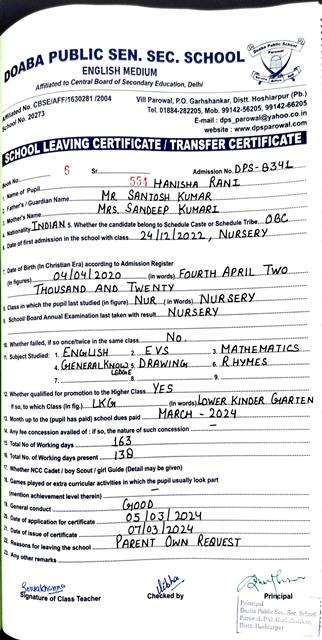 DOABA PUBLIC SEN. SEC. SCHOOL
ENGLISH MEDIUM
Affiliated to Central Board of Secondary Education, Delhi
Affiliated No. CBSE/AFF/1630281 /2004
School No. 20273
Vill Parowal, P.O. Garhshankar, Distt. Hoshiarpur (Pb.)
Tel. 01884-282205, Mob. 99142-56205, 99142-66205
E-mail : dps_parowal@yahoo.co.in
website : www.dpsparowal.com
SCHOOL LEAVING CERTIFICATE / TRANSFER CERTIFICATE
Book No. 6 Sr. 551 Admission No. DPS-834L
1. Name of Pupil HANISHA RANI
2. Father's / Guardian Name MR. SANTOSH KUMAR
3. Mother's Name MRS. SANDEEP KUMARI
4. Nationality INDIAN 5. Whether the candidate belong to Schedule Caste or Schedule Tribe OBC
6. Date of first admission in the school with class 24/12/2022, NURSERY
7. Date of Birth (In Christian Era) according to Admission Register
(In figures) 04/04/2020 (in words) FOURTH APRIL TWO
THOUSAND AND TWENTY
8. Class in which the pupil last studied (in figure) NUR (in Words) NURSERY
9. School Board Annual Examination last taken with result NURSERY
10. Whether failed, if so once/twice in the same class No.
11. Subject Studied: 1. ENGLISH 2. EVS 3. MATHEMATICS
4. GENERAL KNOWLEDGE 5. DRAWING 6. RHYMES
7. 8. 9.
12. Whether qualified for promotion to the Higher Class YES
If so, to which Class (In fig.) LKG (In words) LOWER KINDER GARTEN
13. Month up to the (pupil has paid) school dues paid MARCH - 2024
14. Any fee concession availed of : if so, the nature of such concession —
15. Total No of Working days 163
16. Total No. of Working days present 138
17. Whether NCC Cadet / boy Scout / girl Guide (Detail may be given)
18. Games played or extra curricular activities in which the pupil usually look part
(mention achievement level therein) —
19. General conduct GOOD
20. Date of application for certificate 05/03/2024
21. Date of issue of certificate 07/03/2024
22. Reasons for leaving the school PARENT OWN REQUEST
23. Any other remarks
Signature of Class Teacher Checked by Principal
Principal
Doaba Public Sen. Sec. School
Parowal, P.O. Garhshankar,
Distt. Hoshiarpur